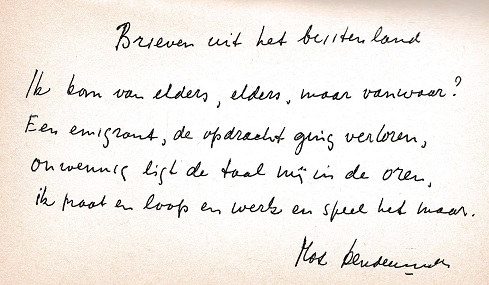 Brieven uit het buitenland
Ik kom van elders, elders, maar vanwaar?
Een emigrant, de opdracht ging verloren,
onwennig ligt de taal mij in de oren,
ik praat en loop en werk en speel het maar.